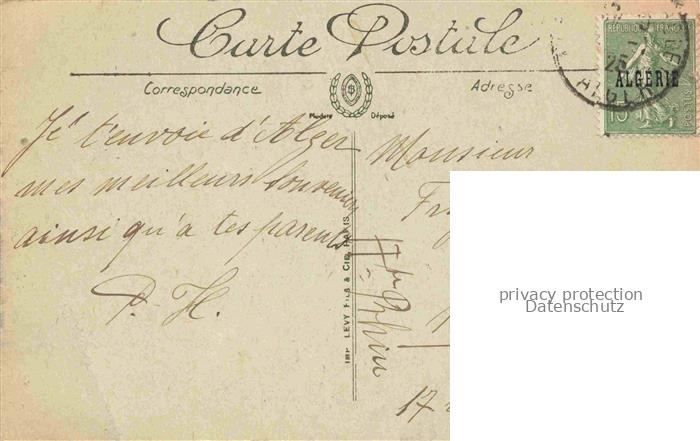 Carte Postale
Correspondance
Adresse
Modèle Déposé
REPUBLIQUE FRANÇAISE
ALGERIE
15
Je t'envoie d'Alger
mes meilleurs souvenirs
ainsi qu'à tes parents
P. H.
Monsieur
IMP LEVY FILS & CIE PARIS
Ht Rhin
17
privacy protection
Datenschutz